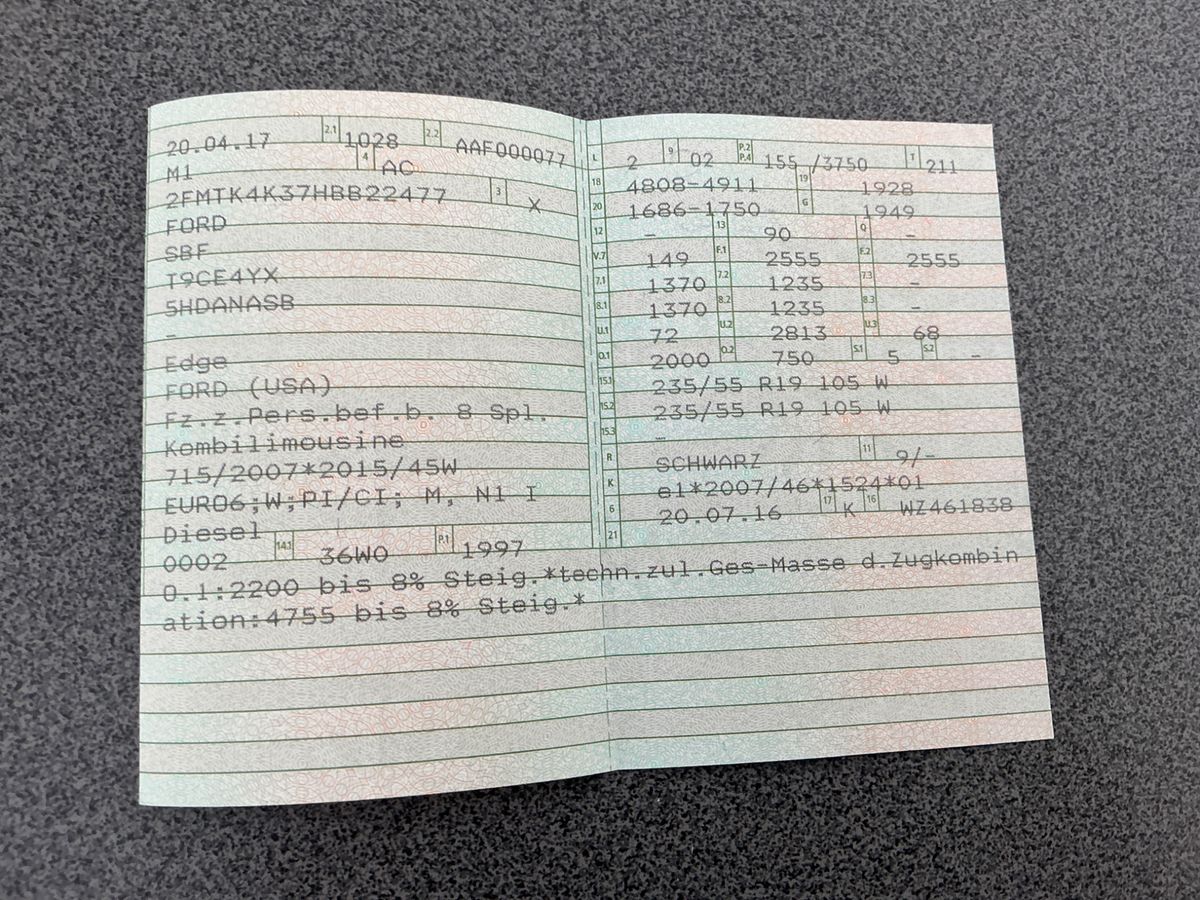 20.04.17 2.1 1028 2.2 AAF000077
M1 4 AC
2FMTK4K37HBB22477 3 X
FORD
SBF
T9CE4YX
5HDANASB
-
Edge
FORD (USA)
Fz.z.Pers.bef.b. 8 Spl.
Kombilimousine
715/2007*2015/45W
EURO6;W;PI/CI; M, N1 I
Diesel
0002 14.1 36W0 P.1 1997
L 2 9 02 P.2 P.4 155 /3750 T 211
18 4808-4911 19 1928
20 1686-1750 G 1949
12 - 13 90 Q -
V.7 149 F.1 2555 F.2 2555
7.1 1370 7.2 1235 7.3 -
8.1 1370 8.2 1235 8.3 -
U.1 72 U.2 2813 U.3 68
O.1 2000 O.2 750 S.1 5 S.2 -
15.1 235/55 R19 105 W
15.2 235/55 R19 105 W
15.3 -
R SCHWARZ 11 9/-
K e1*2007/46*1524*01
6 20.07.16 17 K 16 WZ461838
21
O.1:2200 bis 8% Steig.*techn.zul.Ges-Masse d.Zugkombin
ation:4755 bis 8% Steig.*